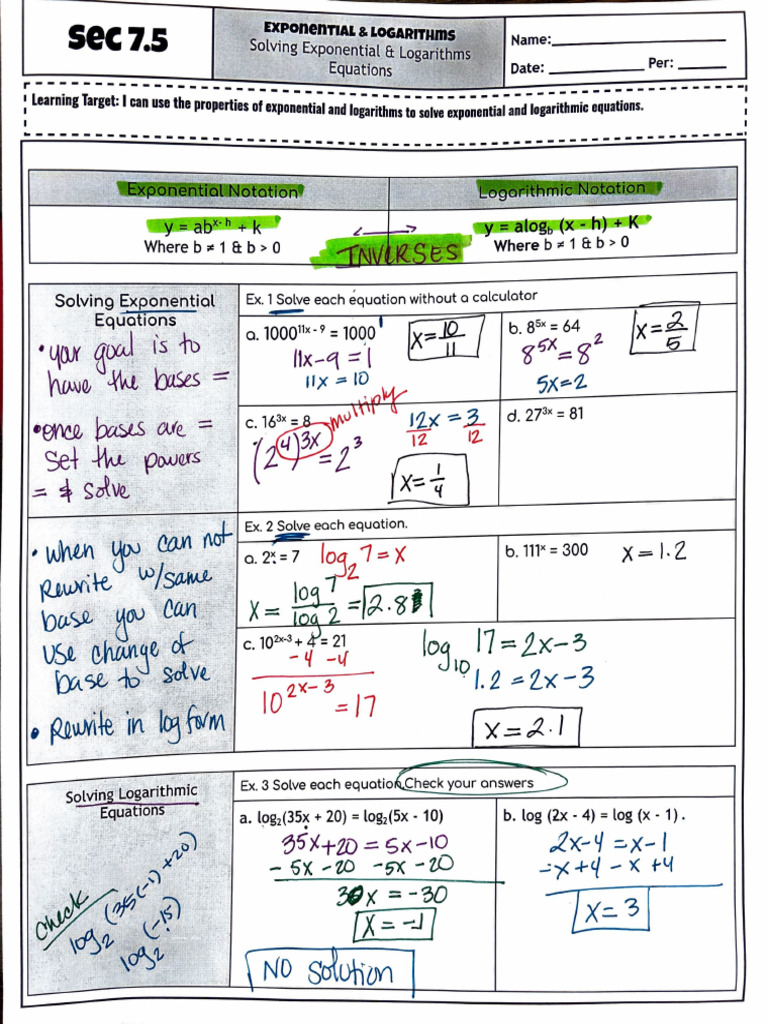 Sec 7.5
Exponential & Logarithms
Solving Exponential & Logarithms
Equations
Name:
Date: Per:
Learning Target: I can use the properties of exponential and logarithms to solve exponential and logarithmic equations.
Exponential Notation
Logarithmic Notation
y = abˣ⁻ʰ + k
Where b ≠ 1 & b > 0
INVERSES
y = alog_b (x - h) + K
Where b ≠ 1 & b > 0
Solving Exponential
Equations
• your goal is to
have the bases =
• once bases are =
set the powers
= & solve
Ex. 1 Solve each equation without a calculator
a. 1000^(11x - 9) = 1000^1
11x-9 = 1
11x = 10
x = 10/11
b. 8^(5x) = 64
8^(5x) = 8^2
5x=2
x = 2/5
c. 16^(3x) = 8
multiply
(2^4)^(3x) = 2^3
12x = 3
12 12
x = 1/4
d. 27^(3x) = 81
• when you can not
Rewrite w/same
base you can
use change of
base to solve
• Rewrite in log form
Ex. 2 Solve each equation.
a. 2ˣ = 7
log₂7 = x
x = log 7/log 2 = 2.8
b. 111ˣ = 300
x = 1.2
c. 10^(2x-3) + 4 = 21
-4 -4
10^(2x-3) = 17
log₁₀ 17 = 2x-3
1.2 = 2x-3
x = 2.1
Solving Logarithmic
Equations
check
log₂(35(-1)+20)
log₂(-15)
Ex. 3 Solve each equation. Check your answers
a. log₂(35x + 20) = log₂(5x - 10)
35x+20 = 5x-10
-5x-20 -5x-20
30x = -30
x = -1
NO solution
b. log (2x - 4) = log (x - 1).
2x-4 = x-1
-x+4 -x+4
x = 3